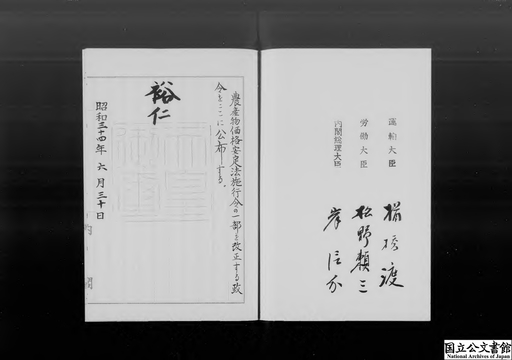 農産物価格安定法施行令の一部を改正する政
令をここに公布する。
裕仁
昭和三十四年六月三十日
内閣
運輸大臣 楢橋渡
労働大臣 松野頼三
内閣総理大臣 岸信介
国立公文書館
National Archives of Japan